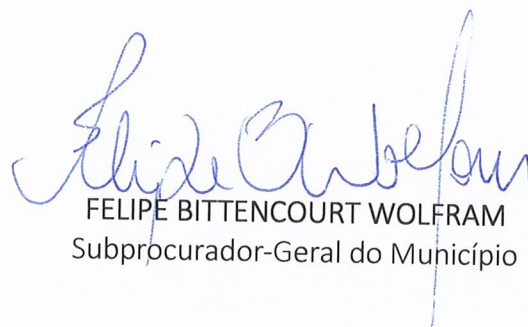 FELIPE BITTENCOURT WOLFRAM
Subprocurador-Geral do Município